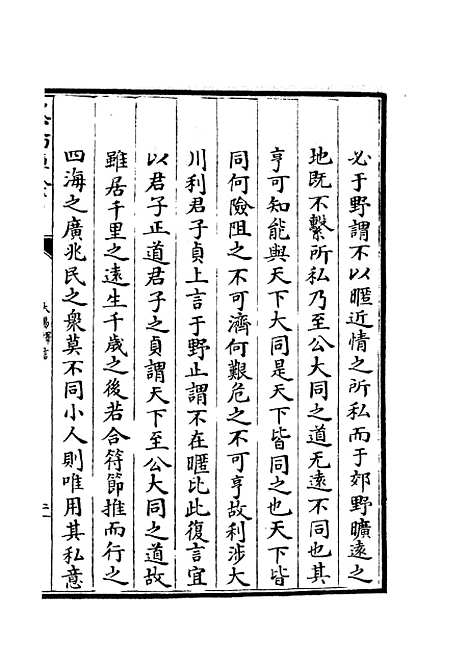 必于野謂不以暱近情之所私而于郊野曠遠之
地既不繫所私乃至公大同之道无遠不同也其
亨可知能與天下大同是天下皆同之也天下皆
同何險阻之不可濟何艱危之不可亨故利涉大
川利君子貞上言于野止謂不在暱比此復言宜
以君子正道君子之貞謂天下至公大同之道故
雖居千里之遠生千歲之後若合符節推而行之
四海之廣兆民之衆莫不同小人則唯用其私意
大易擇言